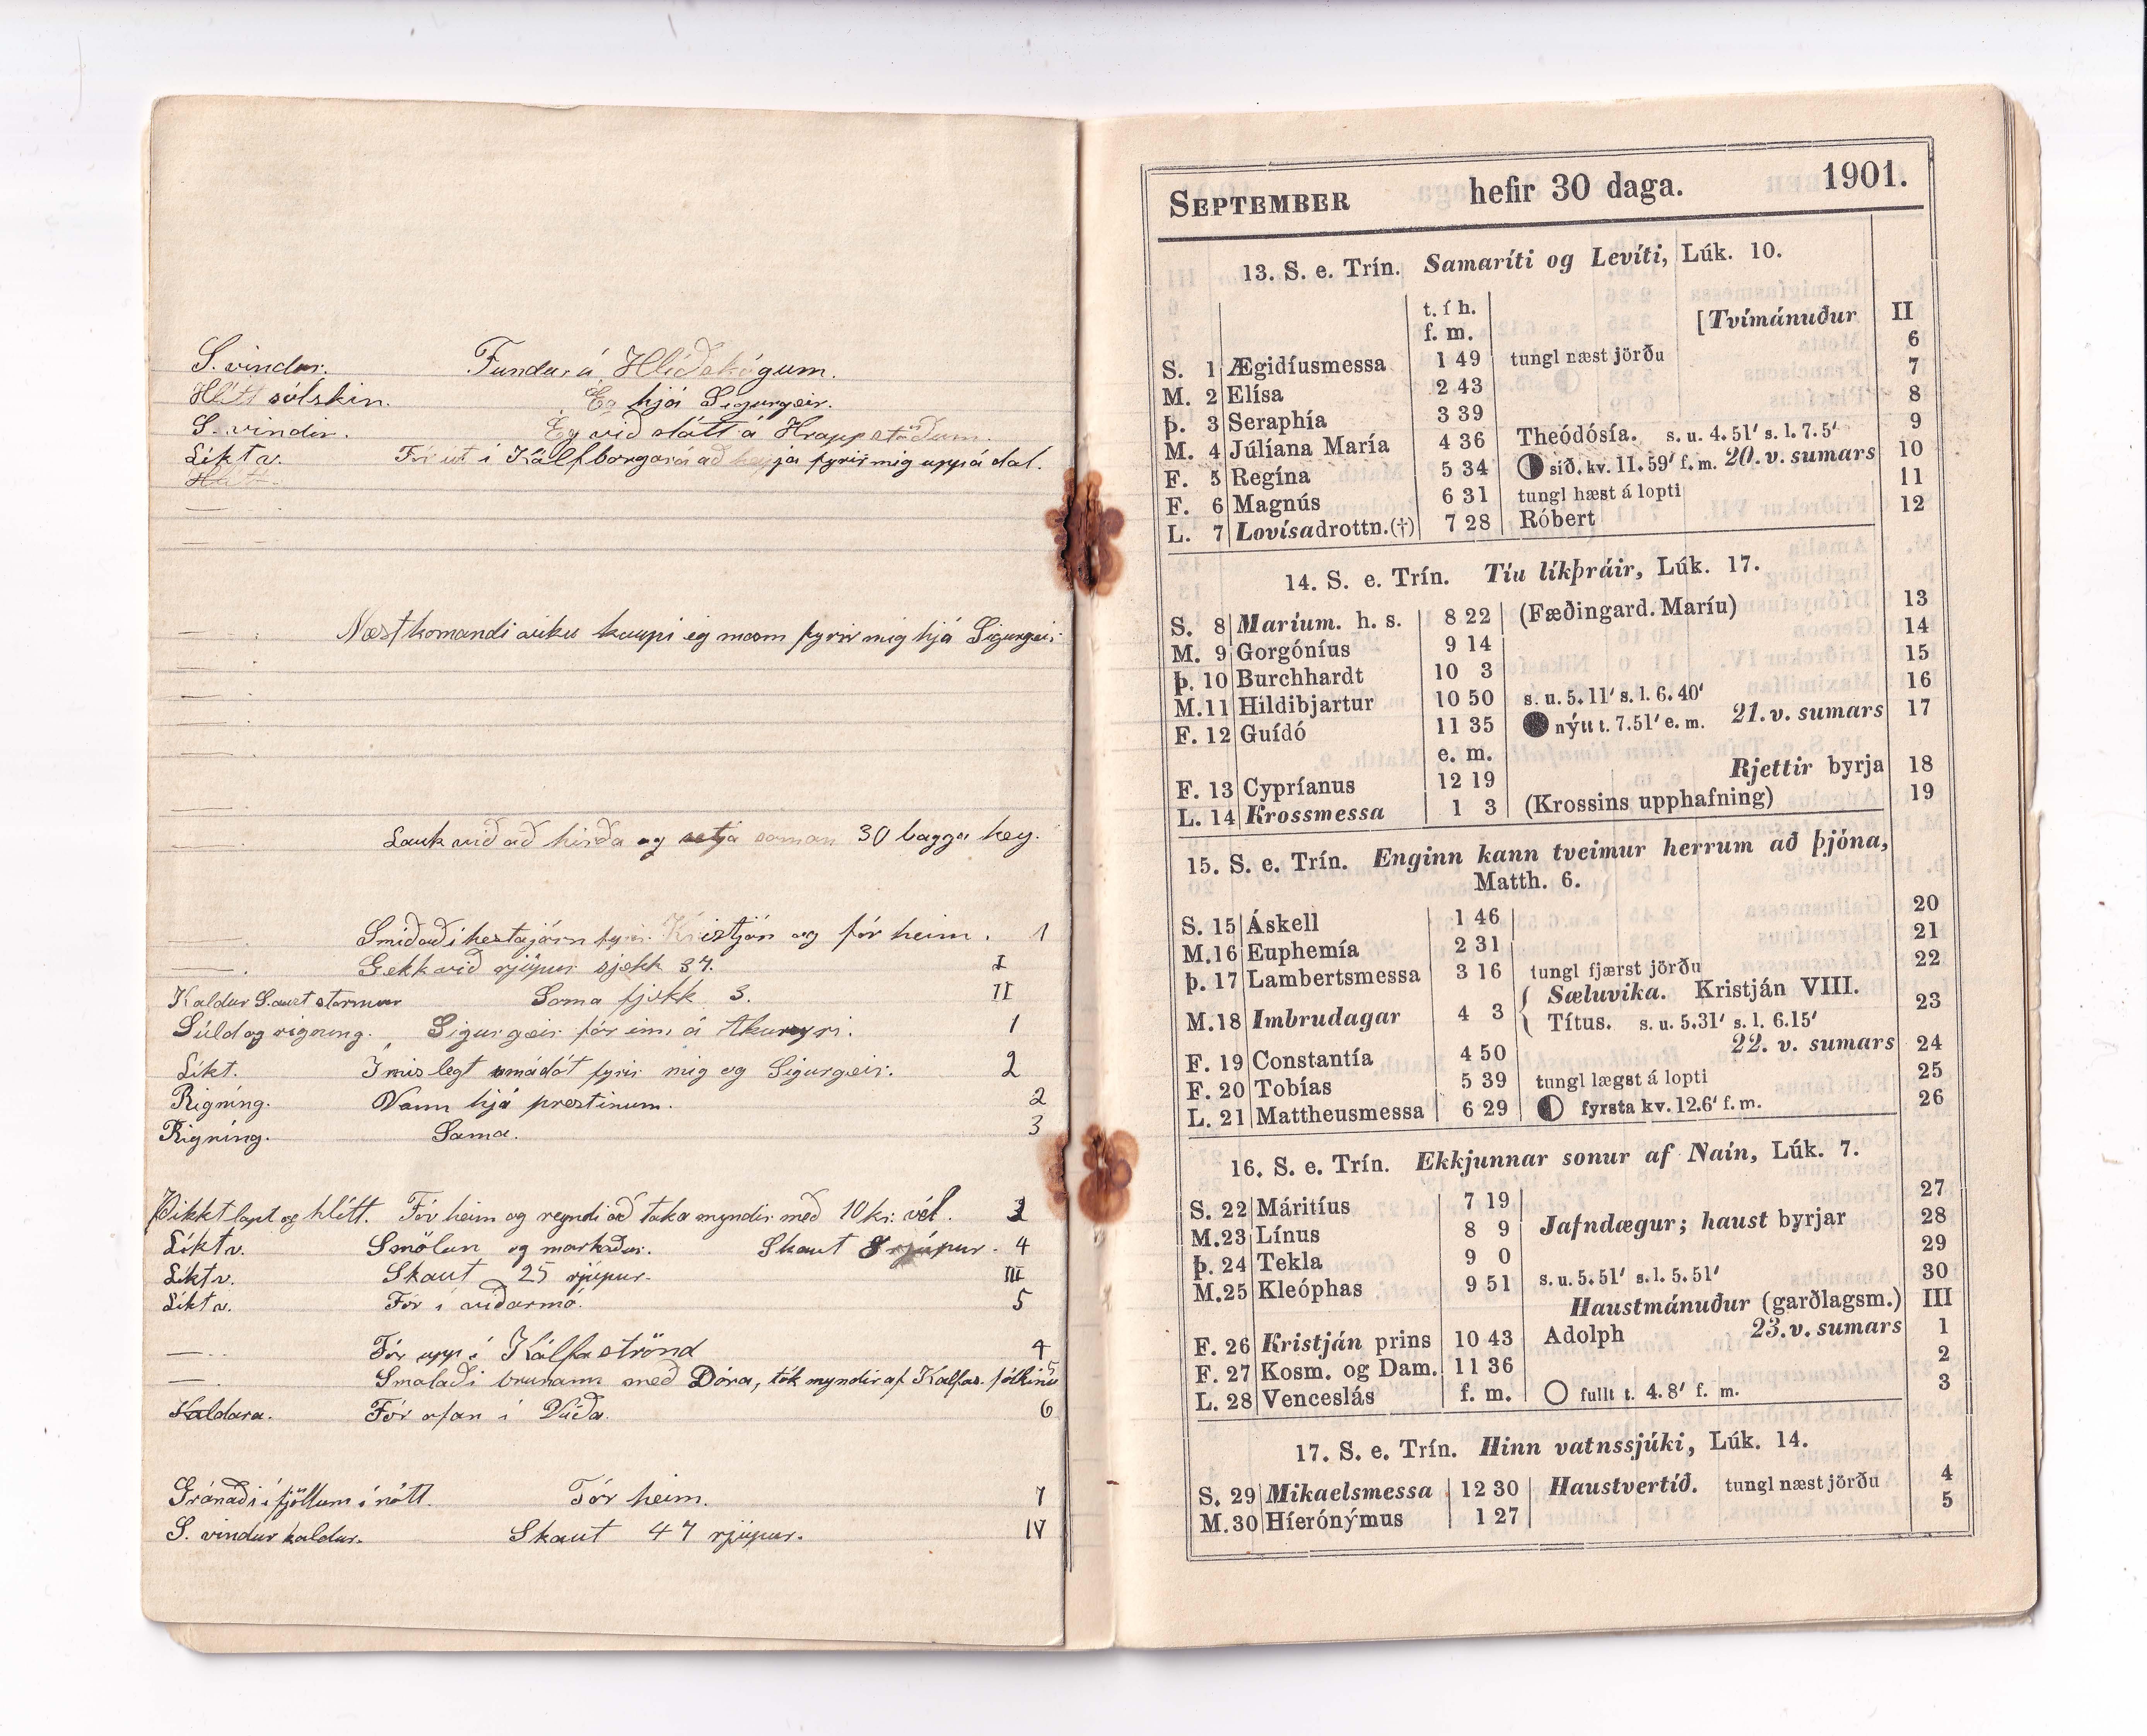 S. vindur. Fundur á Hlíðskógum.
Hlítt sólskin. Ég hjá Sigurgeir.
S. vindur. Ég við slátt á Hrappstöðum.
Líkt v. Fór út í Kálfborgará að heyja fyrir mig uppá dal.
Næstkomandi viku kaupi eg mann fyrir mig hjá Sigurgeir
Lauk við að hirða og setja saman 30 bagga hey.
Smíðaði hestajárn fyrir Kristján og fór heim. 1
Gekk við rjúpur sjekk 37. I
Kaldur S.aust stormur Sama fjekk 3. II
Súld og rigning. Sigurgeir fór inn á Akureyri. 1
Líkt. Ímislegt smádót fyrir mig og Sigurgeir. 2
Rigníng. Vann hjá prestinum. 2
Rigníng. Sama. 3
Þikkt lopt og hlítt. Fór heim og reyndi að taka myndir með 10 kr. vél. 3
Líkt v. Smölun og markaður. Skaut 8 rjúpur. 4
Líkt v. Skaut 25 rjúpur. III
Líkt v. Fór í viðarmó. 5
Fór upp í Kálfaströnd 4
Smalaði brunann með Dóra, tók myndir af Kálfas. fólkinu 5
Kaldara. Fór ofan í Víða. 6
Gránaði í fjöllum í nótt. Fór heim. 7
S. vindur kaldur. Skaut 47 rjúpur. IV
SEPTEMBER hefir 30 daga. 1901.
13. S. e. Trín. Samaríti og Levíti, Lúk. 10.
t. í h. [Tvímánuður II
f. m. 6
S. 1 Ægidíusmessa 1 49 tungl næst jörðu 7
M. 2 Elísa 2 43 8
Þ. 3 Seraphía 3 39 9
M. 4 Júlíana María 4 36 Theódósía. s. u. 4. 51' s. l. 7. 5' 10
F. 5 Regína 5 34 síð. kv. 11. 59' f. m. 20. v. sumars 11
F. 6 Magnús 6 31 tungl hæst á lopti 12
L. 7 Lovísa drottn. (†) 7 28 Róbert
14. S. e. Trín. Tíu líkþráir, Lúk. 17.
S. 8 Maríum. h. s. 8 22 (Fæðingard. Maríu) 13
M. 9 Gorgóníus 9 14 14
Þ. 10 Burchhardt 10 3 15
M. 11 Hildibjartur 10 50 s. u. 5. 11' s. l. 6. 40' 16
F. 12 Guídó 11 35 nýtt t. 7. 51' e. m. 21. v. sumars 17
e. m.
F. 13 Cypríanus 12 19 Rjettir byrja 18
L. 14 Krossmessa 1 3 (Krossins upphafning) 19
15. S. e. Trín. Enginn kann tveimur herrum að þjóna,
Matth. 6.
S. 15 Áskell 1 46 20
M. 16 Euphemía 2 31 21
Þ. 17 Lambertsmessa 3 16 tungl fjærst jörðu 22
Sæluvika. Kristján VIII.
M. 18 Imbrudagar 4 3 Títus. s. u. 5. 31' s. l. 6. 15' 23
F. 19 Constantía 4 50 22. v. sumars 24
F. 20 Tobías 5 39 tungl lægst á lopti 25
L. 21 Mattheusmessa 6 29 fyrsta kv. 12. 6' f. m. 26
16. S. e. Trín. Ekkjunnar sonur af Naín, Lúk. 7.
S. 22 Máritíus 7 19 27
M. 23 Línus 8 9 Jafndægur; haust byrjar 28
Þ. 24 Tekla 9 0 29
M. 25 Kleóphas 9 51 s. u. 5. 51' s. l. 5. 51' 30
Haustmánuður (garðlagsm.) III
F. 26 Kristján prins 10 43 Adolph 23. v. sumars 1
F. 27 Kosm. og Dam. 11 36 2
L. 28 Venceslás f. m. fullt t. 4. 8' f. m. 3
17. S. e. Trín. Hinn vatnssjúki, Lúk. 14.
S. 29 Mikaelsmessa 12 30 Haustvertíð. tungl næst jörðu 4
M. 30 Híerónýmus 1 27 5